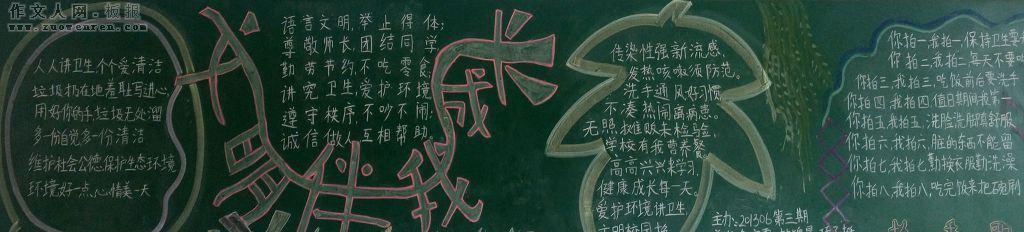 作文人网·板报
www.zuowenren.com
人人讲卫生个个爱清洁
垃圾扔在地羞耻写进心
用好你的手垃圾无处溜
多一份自觉多一份清洁
维护社会公德保护生态环境
环境好一点、心情美一天
语言文明,举止得体;
尊敬师长,团结同学
勤劳节约,不吃零食
讲究卫生,爱护环境
遵守秩序,不吵不闹;
诚信做人,互相帮助。
文明伴我成长
传染性强新流感,
发热咳嗽须防范。
洗手通风好习惯
不凑热闹离病患。
无照摊贩未检验,
学校有我营养餐。
高高兴兴来学习,
健康成长每一天。
爱护环境讲卫生
文明校园
主办:201306第三期
你拍一,我拍一,保持卫生要
你拍二,我拍二,每天不要
你拍三,我拍三,吃饭前后要洗手
你拍四,我拍四,值日期间我第一
你拍五,我拍五,洗脸洗脚隔舒服
你拍六,我拍六,脏的东西不能留
你拍七,我拍七,勤换衣服勤洗澡
你拍八,我拍八,吃完饭来把碗刷